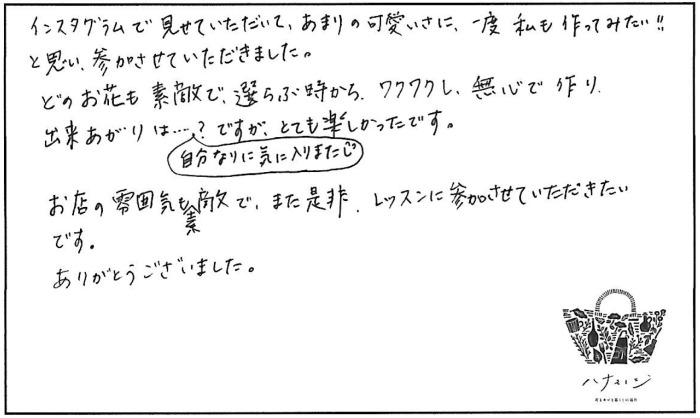 インスタグラムで見せていただいて、あまりの可愛いさに、一度私も作ってみたい!!
と思い、参加させていただきました。
どのお花も素敵で、選らぶ時から、ワクワクし、無心で作り、
出来あがりは…? ですが、とても楽しかったです。
自分なりに気に入りました
お店の雰囲気も素敵で、また是非、レッスンに参加させていただきたい
です。
ありがとうございました。